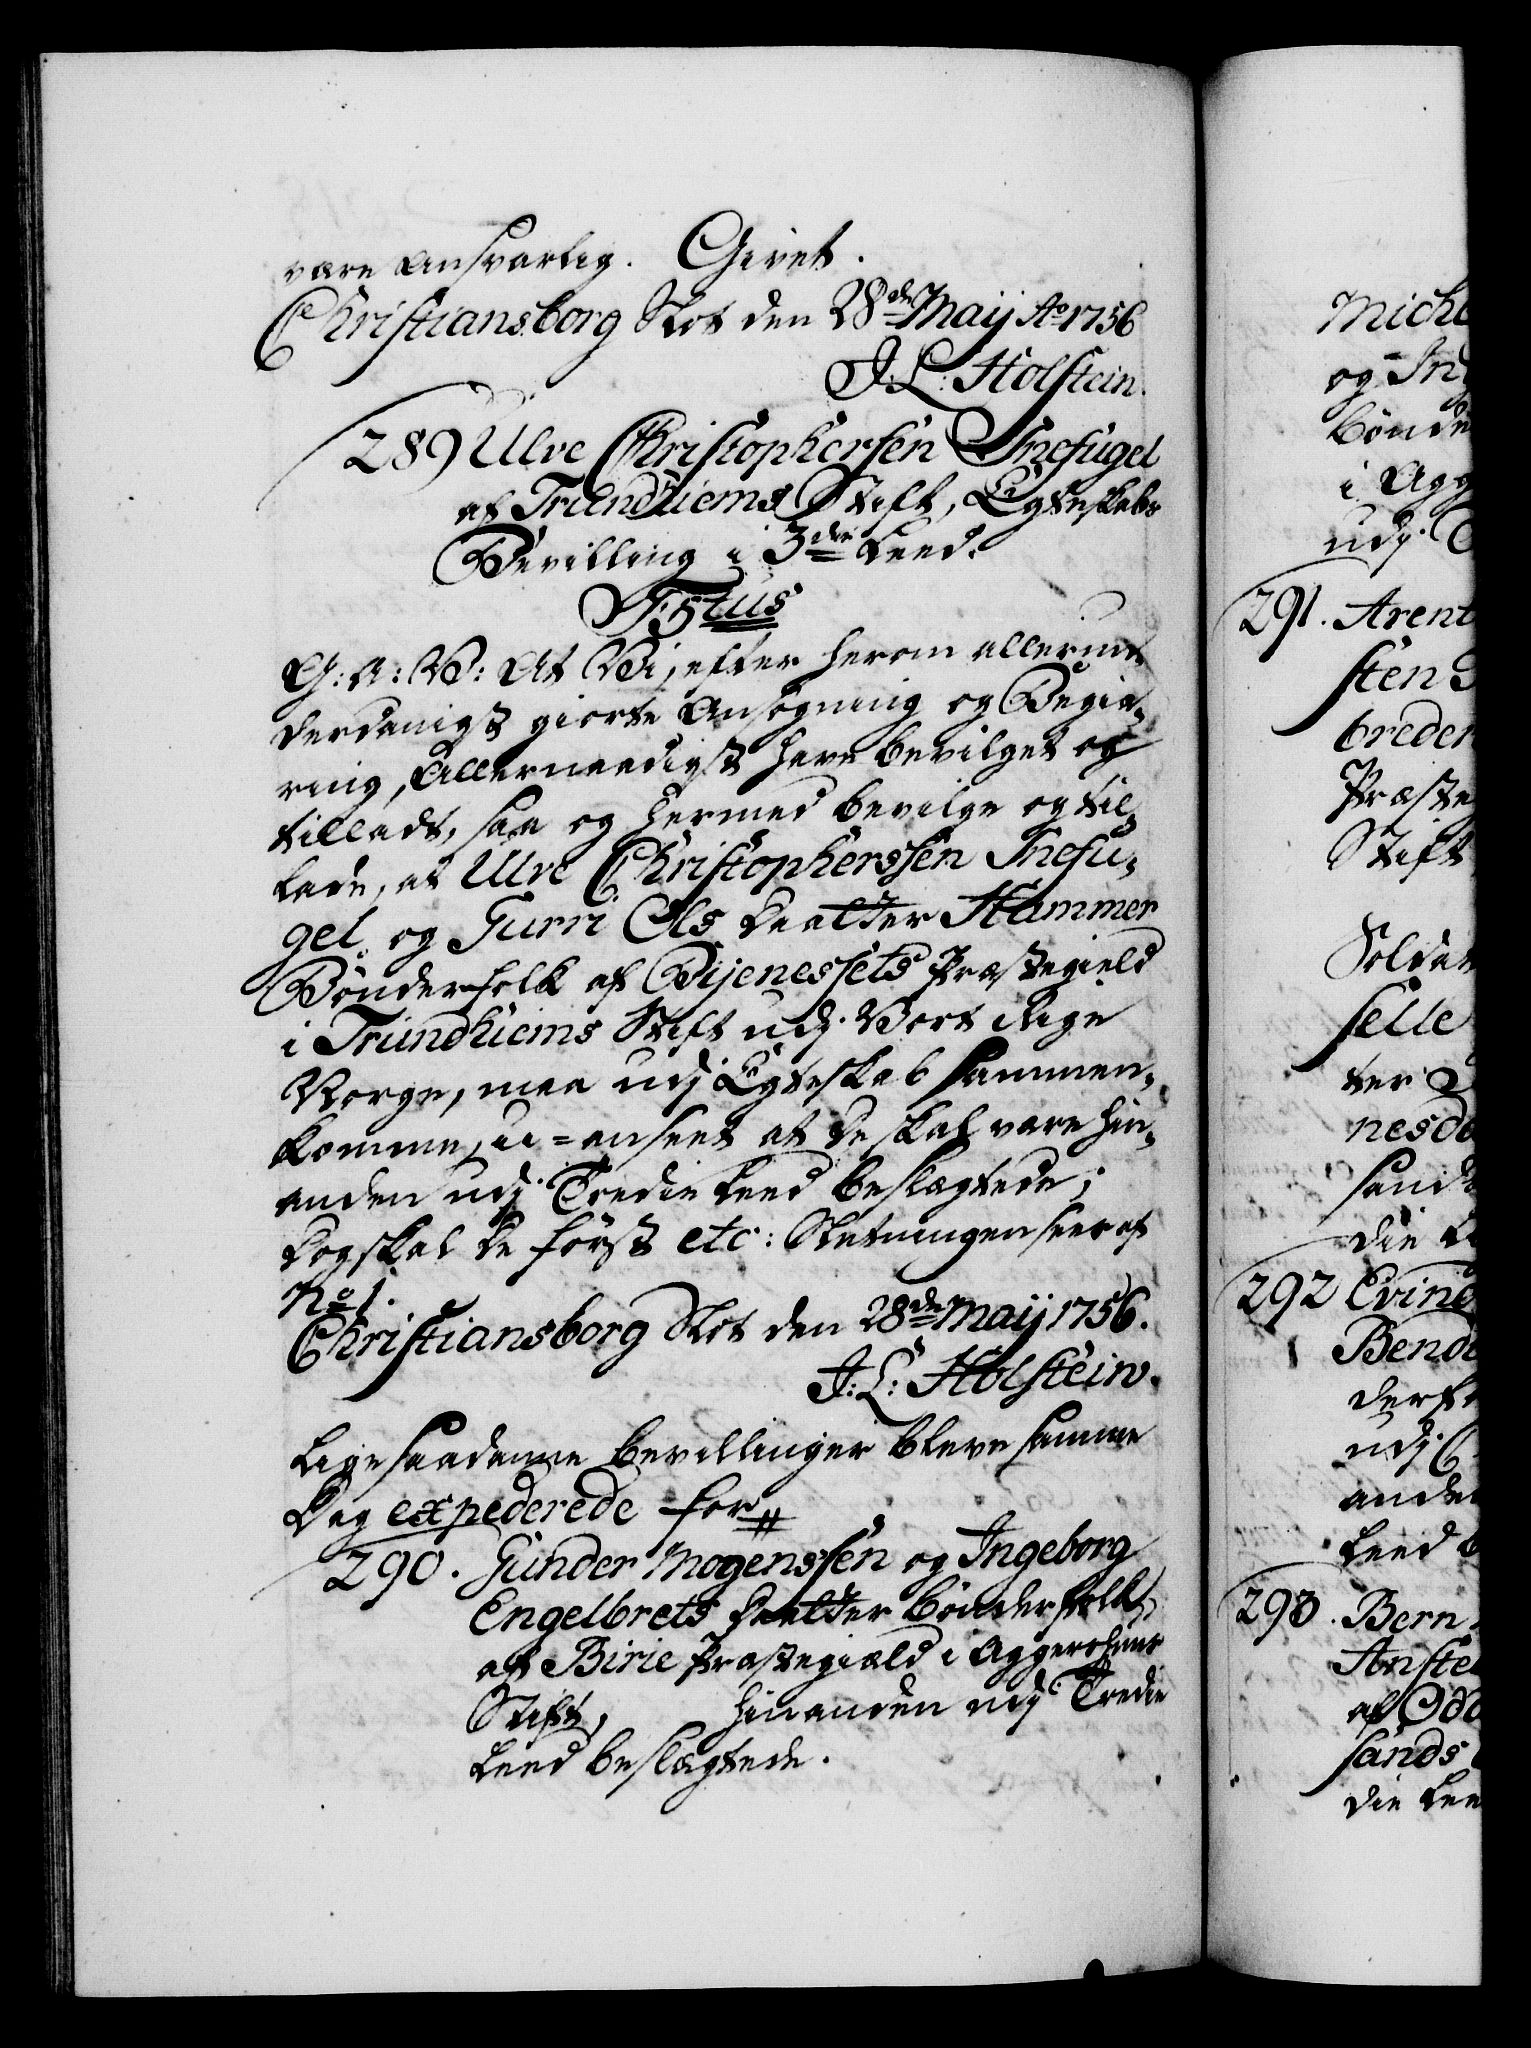 være Ansvarlig. Givet.
Christiansborg Slot den 28de Maij Ao 1756
J: L: Holstein.
289 Ulve Christophersen Snefugel
af Trundhiems Stift, Egteskabs
Bevilling i 3die Leed.
F5tus
G: A: V: At Vi, efter herom allerun-
derdanigst giorte Ansøgning og Begiæ-
ring, Allernaadigst have bevilget og
tilladt, saa og hermed bevilge og til-
lade, at Ulve Christopherssen Snefu-
gel og Gurri Ols Daatter Hammer
Bønderfolk af Bijenessets Præstegield
i Trundhiems Stift udj Vort Rige
Norge, maa udj Egteskab sammen-
komme, u-anseet at de skal være hin-
anden udj Tredie Leed beslægtede;
dog skal de først etc: Slutningen seer af
No 1.
Christiansborg Slot den 28de Maij 1756.
J: L: Holstein.
Lige saadanne bevillinger bleve samme
Dag expederede for
290. Gunder Mogenssen og Ingeborg
Engelbrets Daatter bønderfolk
af Birie Præstegiæld i Aggershuus
Stift, hinanden udj Tredie
Leed beslægtede.
Mich
og In
bønde
i Agg
udj
291. Arent
sten
breder
Præste
Stift
Soldat
selle
ter
nesda
sand
die L
292 Evind
Bend
derfo
udj C
anden
Leed b
293. Bern
Anste
af Odd
sands
die Lee